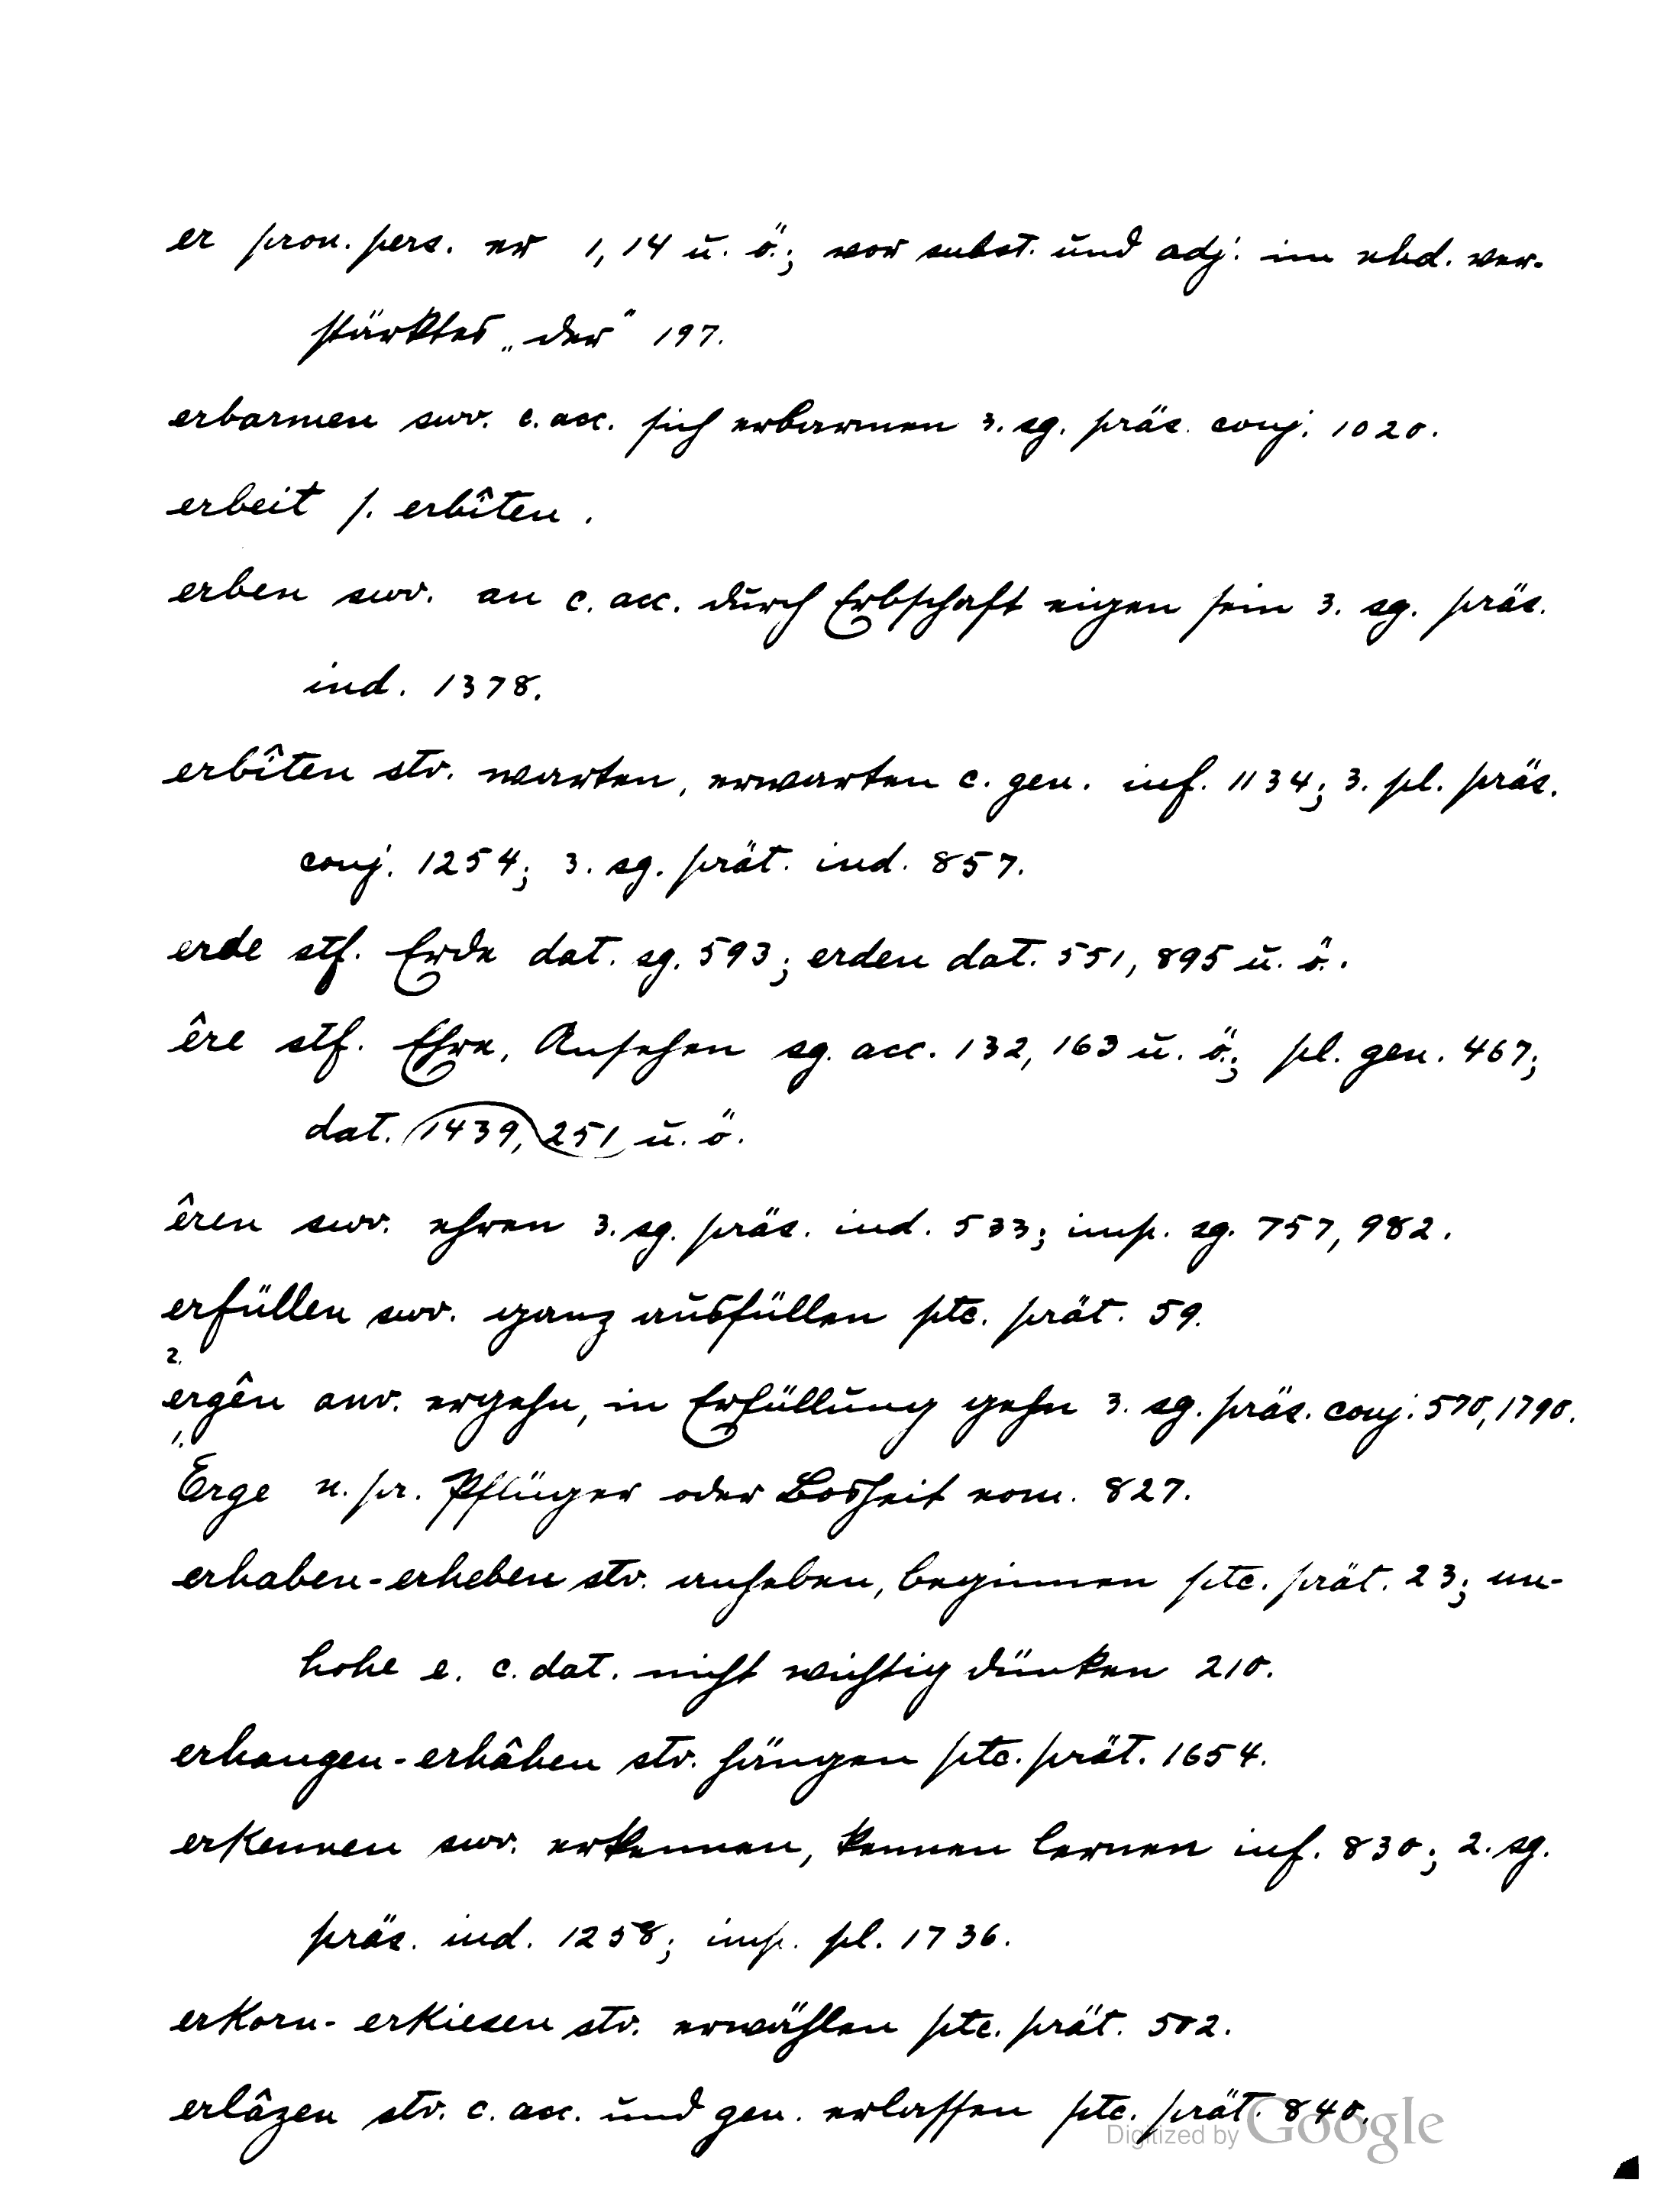 er pron. pers. er 1, 14 u. ö.; vor subst. und adj. im nhd. ver-
stärktes „der" 197.
erbarmen swv. c. acc. sich erbarmen 3. sg. präs. conj. 1020.
erbeit s. erbîten.
erben swv. an c. acc. durch Erbschaft eigen sein 3. sg. präs.
ind. 1378.
erbîten stv. warten, erwarten c. gen. inf. 1134; 3. pl. präs.
conj. 1254; 3. sg. prät. ind. 857.
erde stf. Erde dat. sg. 593; erden dat. 551, 895 u. ö.
êre stf. Ehre, Ansehen sg. acc. 132, 163 u. ö.; pl. gen. 467;
dat. 1439, 251 u. ö.
êren swv. ehren 3. sg. präs. ind. 533; imp. sg. 757, 982.
erfüllen swv. ganz ausfüllen ptc. prät. 59.
2.
ergên anv. ergehn, in Erfüllung gehn 3. sg. präs. conj. 570, 1790.
1.
Erge n. pr. Pflüger oder Bosheit nom. 827.
erhaben-erheben stv. anheben, beginnen ptc. prät. 23; un-
hohe e. c. dat. nicht wichtig dünken 210.
erhangen-erhâhen stv. hängen ptc. prät. 1654.
erkennen swv. erkennen, kennen lernen inf. 830; 2. sg.
präs. ind. 1258; imp. pl. 1736.
erkorn-erkiesen stv. erwählen ptc. prät. 502.
erlâzen stv. c. acc. und gen. erlassen ptc. prät. 840.
Digitized by Google